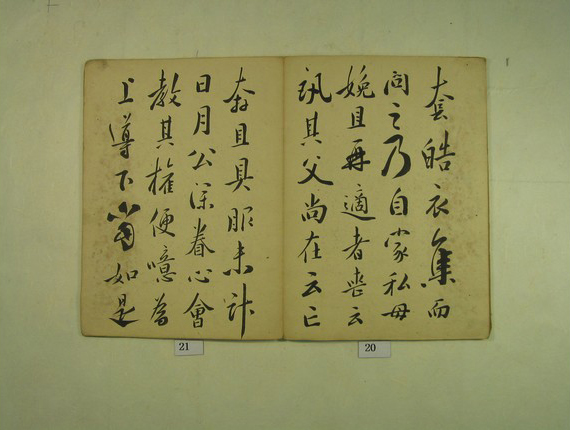 套皓衣集而
閱之乃自家私毋
娩且再適者喪云
訊其父尚在云亡
并且具服未計
日月公深眷心會
教其權便噫為
上導下當如是
20
21